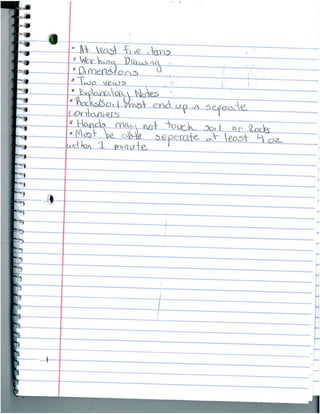 • At least five items
• Working Drawing
• Dimensions
• Two views
• Explanatory Notes
• Rocks/Soil must end up in seperate
containers
• Hands may not touch soil or Rocks
• Must be able seperate at least 4 oz
within 1 minute